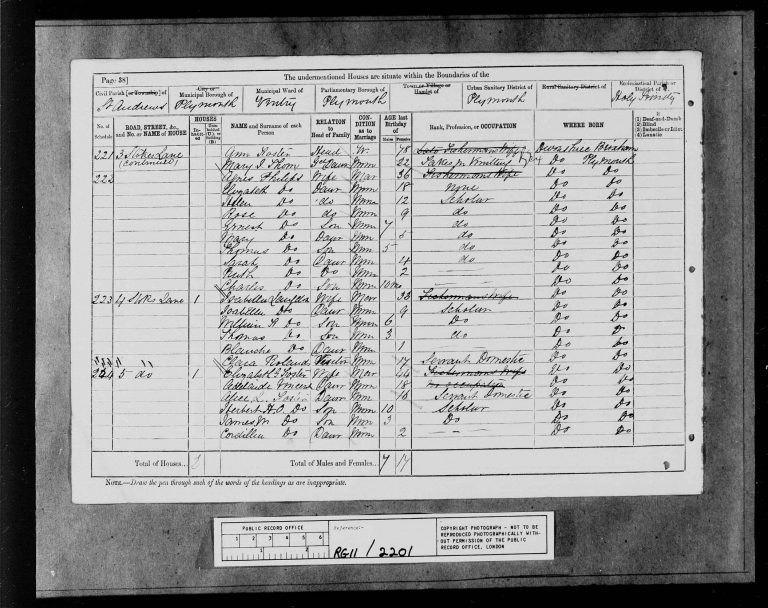 Page 38]
The undermentioned Houses are situate within the Boundaries of the
Civil Parish [or Township] of
St Andrews
City or Municipal Borough of
Plymouth
Municipal Ward of
Vintry
Parliamentary Borough of
Plymouth
Town or Village or Hamlet of
Urban Sanitary District of
Plymouth
Rural Sanitary District of
Ecclesiastical Parish or District of
Holy Trinity
No. of Schedule
ROAD, STREET, &c., and No. or NAME of HOUSE
HOUSES
NAME and Surname of each Person
RELATION to Head of Family
CONDITION as to Marriage
AGE last Birthday of
Rank, Profession, or OCCUPATION
WHERE BORN
(1) Deaf-and-Dumb
(2) Blind
(3) Imbecile or Idiot
(4) Lunatic
221 3 Stokes Lane Ann Foster Head W. 78 Devonshire Brixham
(continued) Mary Daur Unm 22 Do Plymouth
222 Agnes Philips Wife Mar 36 Fishermans Wife Do Do
Elizabeth Do Daur Unm 18 None Do Do
Ellen Do do Unm 12 Scholar Do Do
Rose Do do Unm 9 do Do Do
Ernest Do Son Unm 7 do Do Do
Mary Do Daur Unm do Do Do
Thomas Do Son Unm 5 do Do Do
Sarah Do Daur Unm 4 do Do Do
Ruth Do Do Unm 2 Do Do
Charles Do Son Unm 10 Mo Do Do
223 4 Stokes Lane 1 Isabella Wife Mar 33 Fishermans Wife Do Do
Isabella Do Daur Unm 9 Scholar Do Do
William H. Do Son Unm 6 Do Do Do
Thomas Do Son Unm 3 do Do
Blanche Do Daur Unm 1 Do Do
Clara Visitor Unm 17 Servant Domestic Do Do
224 5 do 1 Elizabeth Foster Wife Mar 44 Fishermans Wife Do Do
Adelaide Daur Unm 18 No occupation Do Do
Alice L. Foster Daur Un 16 Servant Domestic Do Do
Herbert Do Son Unm 10 Scholar Do Do
James M. Do Son Unm 3 Do Do Do
Do Daur Unm 2 Do Do
Total of Houses... Total of Males and Females... 7 17
NOTE.—Draw the pen through such of the words of the headings as are inappropriate.
PUBLIC RECORD OFFICE
1 2 3 4 5 6
1 2
Reference:-
RG11 / 2201
COPYRIGHT PHOTOGRAPH - NOT TO BE
REPRODUCED PHOTOGRAPHICALLY WITH-
OUT PERMISSION OF THE PUBLIC
RECORD OFFICE, LONDON